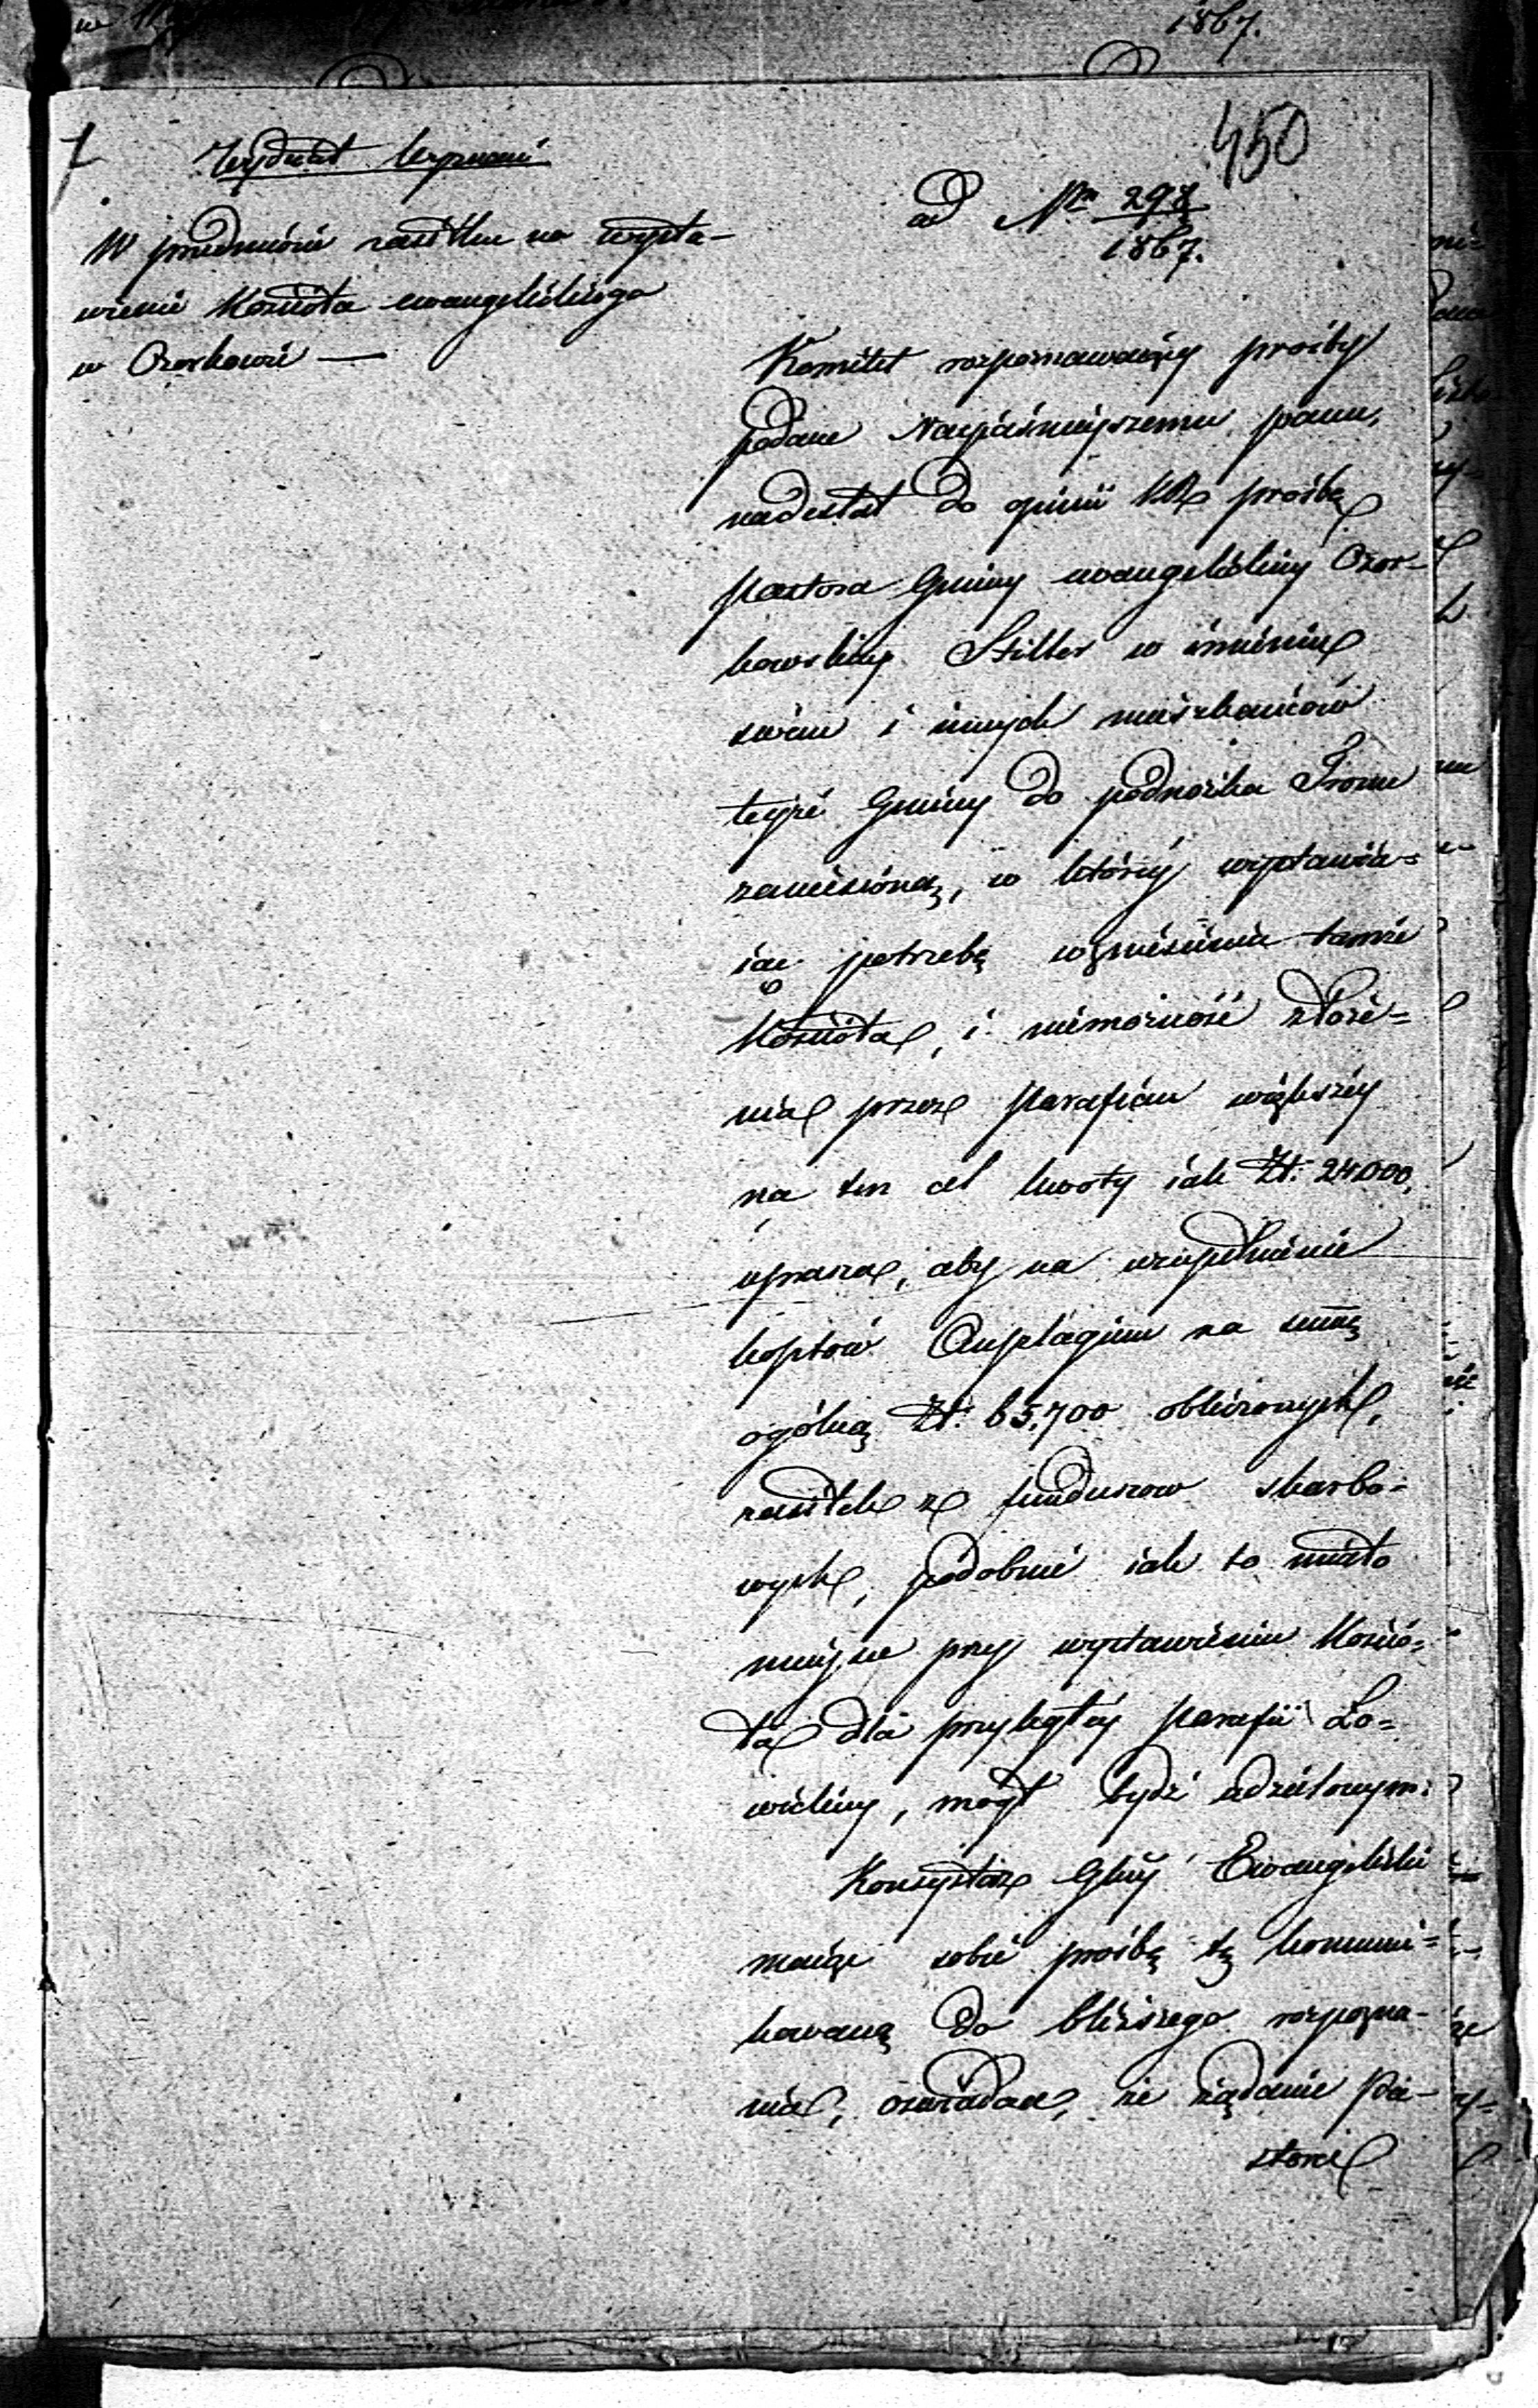 1867.
450
Wydział Wyznań
ad Nrm 298
1867.
W przedmiocie zasiłku na wysta-
wienie Kościoła ewangelickiego
w Ozorkowie —
Komitet rozpoznawaiący prośby
podane Nayiaśnieyszemu panu,
nadesłał do opinii KR prośbę
Pastora Gminy ewangelickiey Ozor-
kowskiey Stiller w imieniu
swém i innych mieszkańców
teyże Gminy do podnóżka Tronu
zaniesioną, w któréy wystawia-
iąc potrzebę wzniesienia tamże
Kościoła, i niemożność złoże=
nia przez Parafian większéy
na ten cel kwoty iak Zł: 24000,
uprasza, aby na uzupełnienie
kosztów Anszlagiem na summę
ogólną Zł: 65,700 obliczonych,
zasiłek z funduszow skarbo=
wych, podobnie iak to miało
mieysce przy wystawieniu Kośció=
ła dla przyległéy Parafii Ło=
wickiey, mógł bydź udzielonym.
Konsystorz Glny Ewangelicki
maiąc sobie prośbę tę kommuni=
kowaną do bliższego rozpozna-
nia, oświadcza, że żądanie Pa-
stora